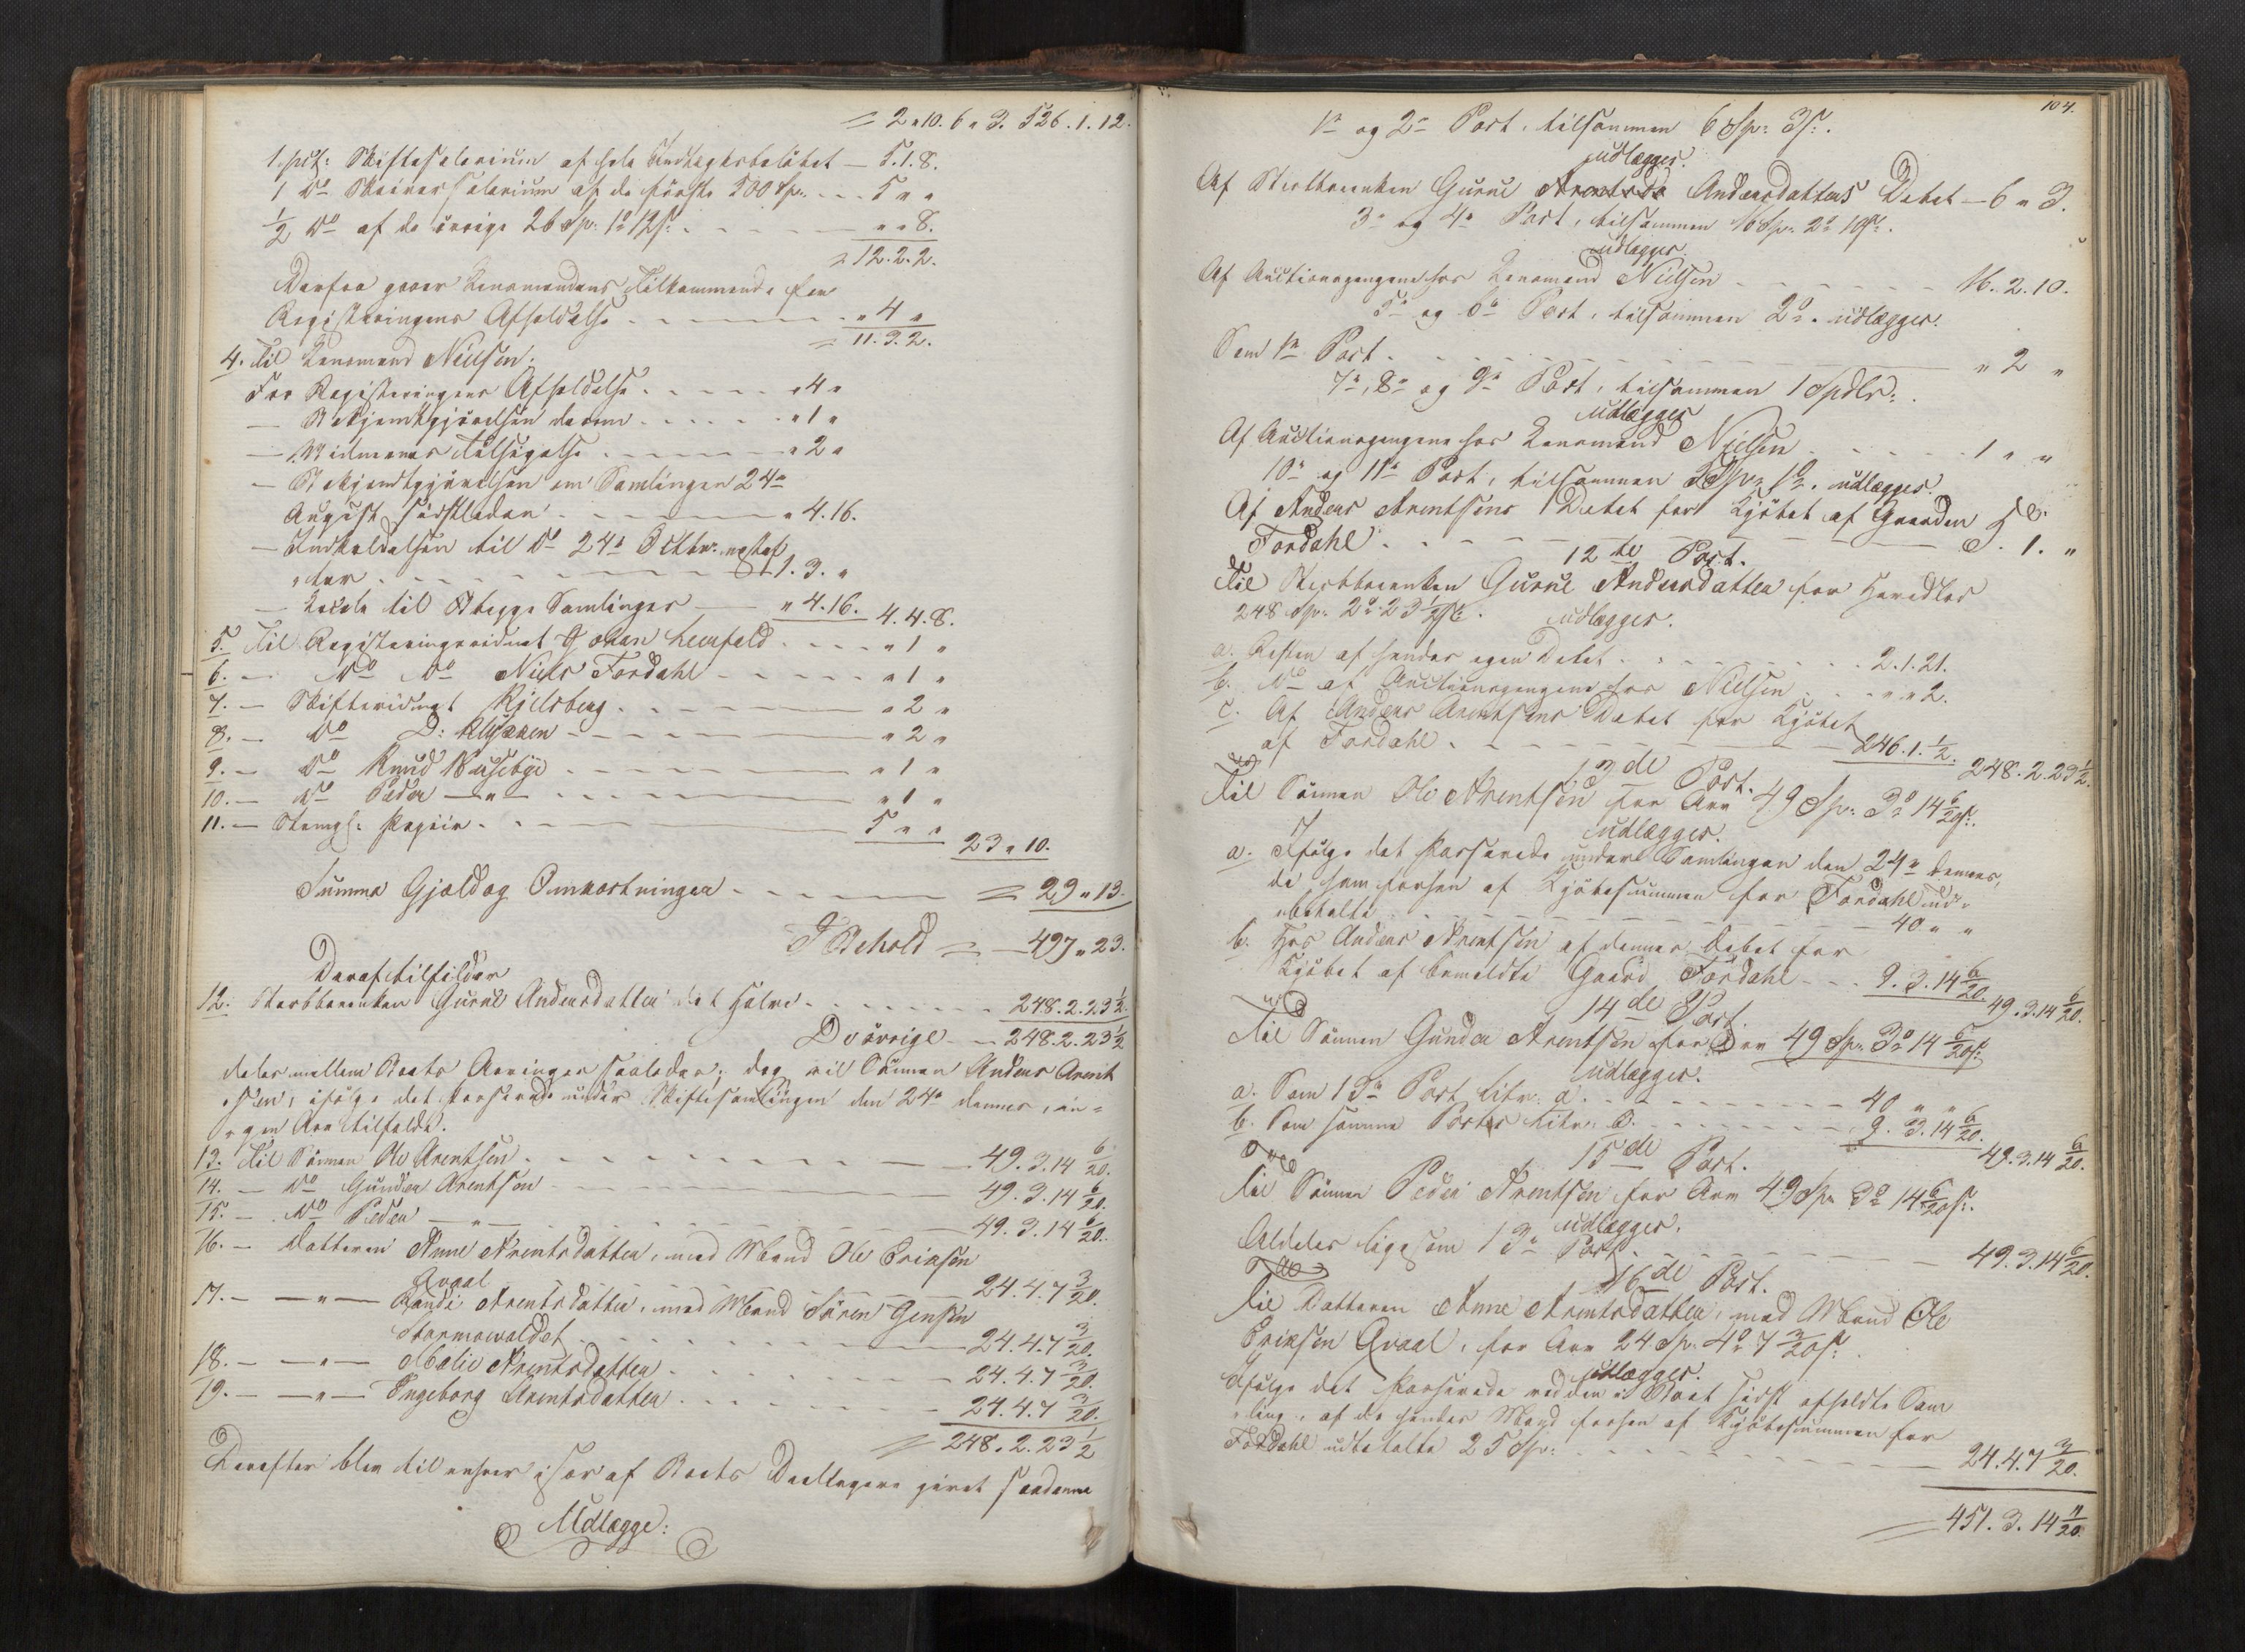 = 2 " 10. 6 " 3. 526. 1. 12.
1. pCt: Skiftesalarium af hele Indtægtsbeløbet — 5. 1. 8.
1 Do Skriversalarium af de første 500 Spd: - - - 5 " "
½ Do af de øvrige 26 Sp: 1o 12s: - - - " " 8.
= 12. 2. 2.
Derfra gaaer Lensmandens Tilkommende for
Registeringens Afholdelse - - - " 4 "
= 11. 3. 2.
4. Til Lensmand Nielsen:
For Registeringens Afholdelse - - - " 4 "
— Bekjendtgjørelsen derom - - - " 1 "
— Vidnernes Tilsigelse - - - " 2 "
— Bekjendtgjørelsen om Samlingen 24de
August sidstleden - - - " 4. 16.
— Indkaldelsen til Do 24de Octbr: næstef
"ter - - - 1. 3. "
— Locale til begge Samlinger — " 4. 16. 4. 4. 8.
5. Til Registeringsvidnet Johan Leerfald - - - " 1 "
6. — Do Do Niels Fordahl - - - " 1 "
7. — Skiftevidnet Kjelsberg - - - " 2 "
8. — Do D: Klykken - - - " 2 "
9. — Do Knud Busebye - - - " 1 "
10. — Do Peder — " — - - - " 1 "
11. — Stempl: Papiir - - - 5 " " 23 " 10.
Summa Gjæld og Omkostninger - - - = 29 " 13.
I Behold = — 497 " 23.
Deraf tilfalder
12. Sterbbeenken Guruе Andersdatter det Halve - - - 248. 2. 23½.
De øvrige — 248. 2. 23½
deles mellem Boets Arvinger saaledes; dog vil Sønnen Anders Arent
"sen, ifølge det passerede under Skiftesamlingen den 24de dennes, in=
"gen Arv tilfalde.
13. Til Sønnen Ole Arentsen - - - 49. 3. 14 6/20.
14. — Do Gunder Arentsen - - - 49. 3. 14 6/20.
15. — Do Peder — " — - - - 49. 3. 14 6/20.
16. — Datteren Anne Arentsdatter, med Mand Ole Eriksen
Qvaal - - - 24. 4. 7 3/20.
17. — — " — Randi Arentsdatter, med Mand Søren Jensen
- - - 24. 4. 7 3/20.
18. — — " — Malie Arentsdatter - - - 24. 4. 7 3/20.
19. — — " — Ingeborg Arentsdatter - - - 24. 4. 7 3/20.
= 248. 2. 23½
Derefter blev til enhver især af Boets Deeltagere gjort saadanne
Udlægge:
104.
1ste og 2den Post, tilsammen 6 Sp: 3s:.
udlægges.
Af Sterbbeenken Guruе Arentsda Andersdatters Debet — 6 " 3.
3die og 4de Post, tilsammen 16 Sp: 2o 10s:.
udlægges.
Af Auctionspengene hos Lensmand Nielsen - - - 16. 2. 10.
5te og 6te Post, tilsammen 2o. udlægges.
Som 1ste Post - - - " 2 "
7de, 8de og 9de Post, tilsammen 1 Spdlr:.
udlægges
Af Auctionspengene hos Lensmand Nielsen - - - 1 " "
10de og 11te Post, tilsammen 5 Sp: 1o. udlægges.
Af Anders Arentsens Debet for Kjøbet af Gaarden
Fordahl - - - 5. 1. "
12te Post.
Til Sterbbeenken Guruе Andersdatter for Hovedlod
248 Sp: 2o 23½s:. udlægges.
a. Resten af hendes egen Debet - - - 2. 1. 21.
b. Do af Auctionspengene hos Nielsen - - - " " 2.
c. Af Anders Arentsens Debet for Kjøbet
af Fordahl - - - 246. 1. ½. 248. 2. 23½.
13de Post.
Til Sønnen Ole Arentsen for Arv 49 Sp: 3o 14 6/20s:.
udlægges.
a. Ifølge det Passerede under Samlingen den 24de dennes,
de ham forhen af Kjøbesummen for Fordahl ud=
"betalte - - - 40 " "
b. Hos Anders Arentsen af dennes Debet for
Kjøbet af bemeldte Gaard Fordahl - - - 9. 3. 14 6/20. 49. 3. 14 6/20.
14de Post.
Til Sønnen Gunder Arentsen for Arv 49 Sp: 3o 14 6/20s:
udlægges.
a. Som 13de Post Litr: a. - - - 40 " "
b. Som samme Postes Litr: b. - - - 9. 3. 14 6/20. 49. 3. 14 6/20.
15de Post.
Til Sønnen Peder Arentsen for Arv 49 Sp: 3o 14 6/20s:.
udlægges.
Aldeles ligesom 13de Post - - - 49. 3. 14 6/20.
16de Post.
Til Datteren Anne Arentsdatter, med Mand Ole
Eriksen Qvaal, for Arv 24 Sp: 4o 7 3/20s:.
udlægges.
Ifølge det Passerede ved den i Boet sidst afholdte Sam
"ling, af de hendes Mand forhen af Kjøbesummen for
Fordahl udbetalte 25 Sp: - - - 24. 4. 7 3/20.
= 451. 3. 14 11/20.